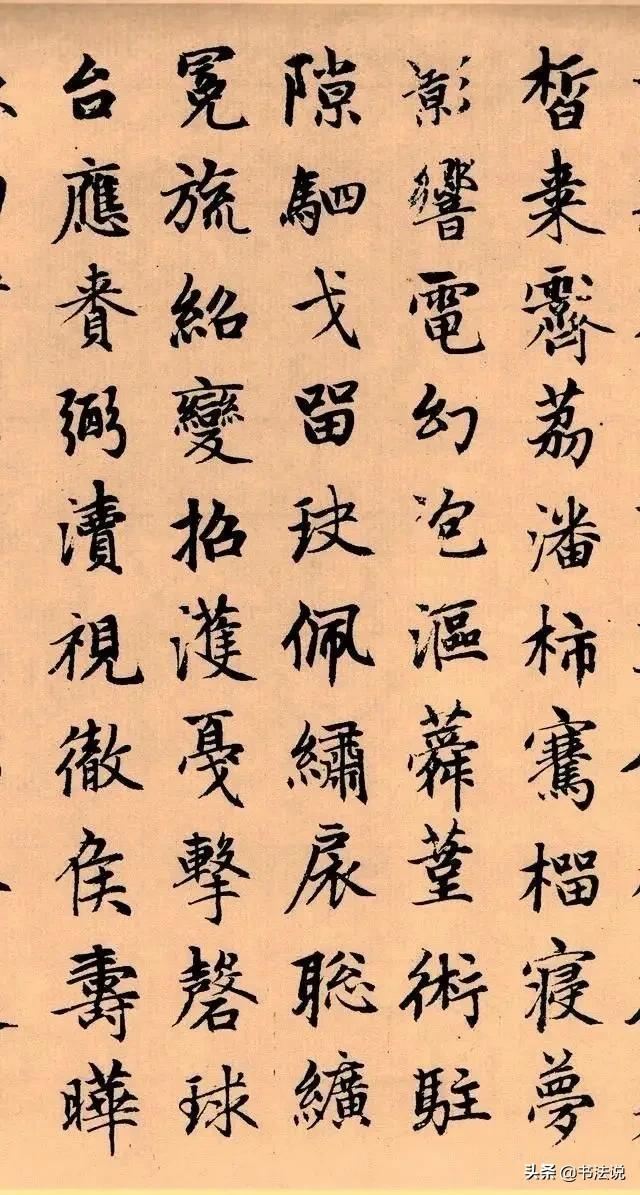 霽荔潘柿騫榴寢夢
影響電幻泡漚蕣堇術駐
隙駟戈留玦佩繡扆聡纊
冕旒紹變招濩戛擊磬球
台應賚弼瀆視徹侯壽曄
头条 @书法说